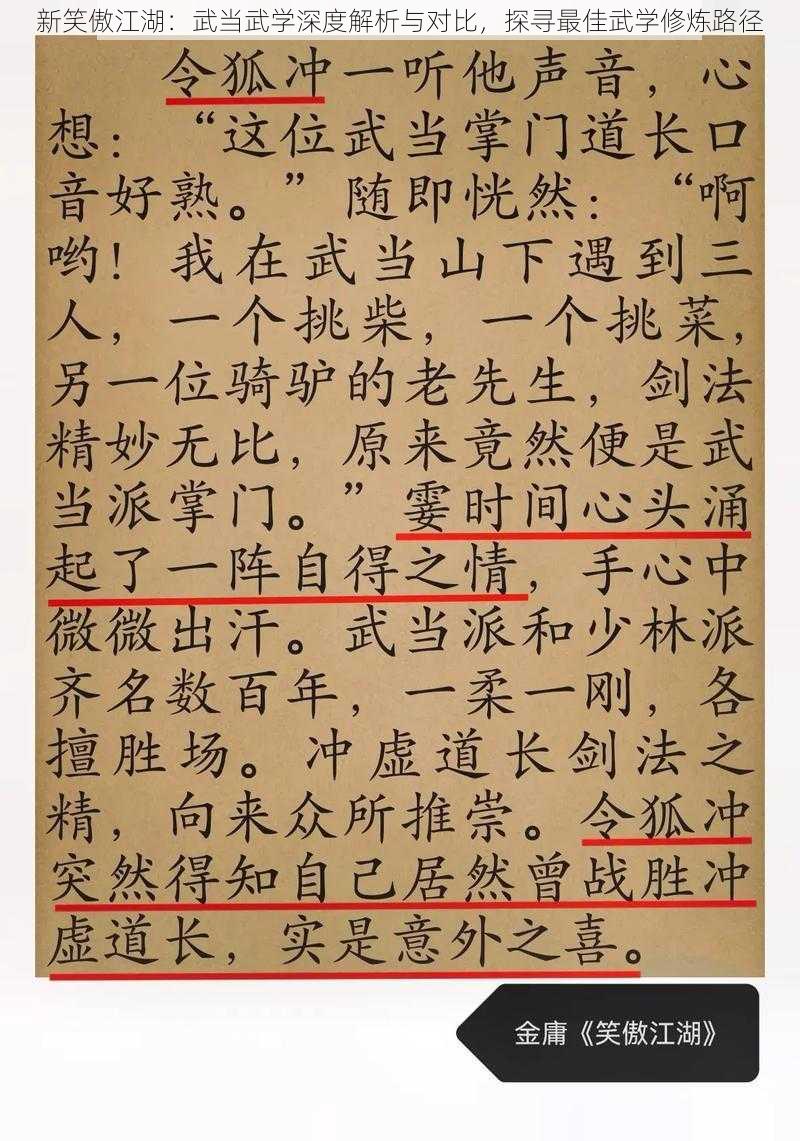 新笑傲江湖：武当武学深度解析与对比，探寻最佳武学修炼路径
令狐冲一听他声音，心
想：“这位武当掌门道长口
音好熟。”随即恍然：“啊
哟！我在武当山下遇到三
人，一个挑柴，一个挑菜，
另一位骑驴的老先生，剑法
精妙无比，原来竟然便是武
当派掌门。”霎时间心头涌
起了一阵自得之情，手心中
微微出汗。武当派和少林派
齐名数百年，一柔一刚，各
擅胜场。冲虚道长剑法之
精，向来众所推崇。令狐冲
突然得知自己居然曾战胜冲
虚道长，实是意外之喜。
金庸《笑傲江湖》